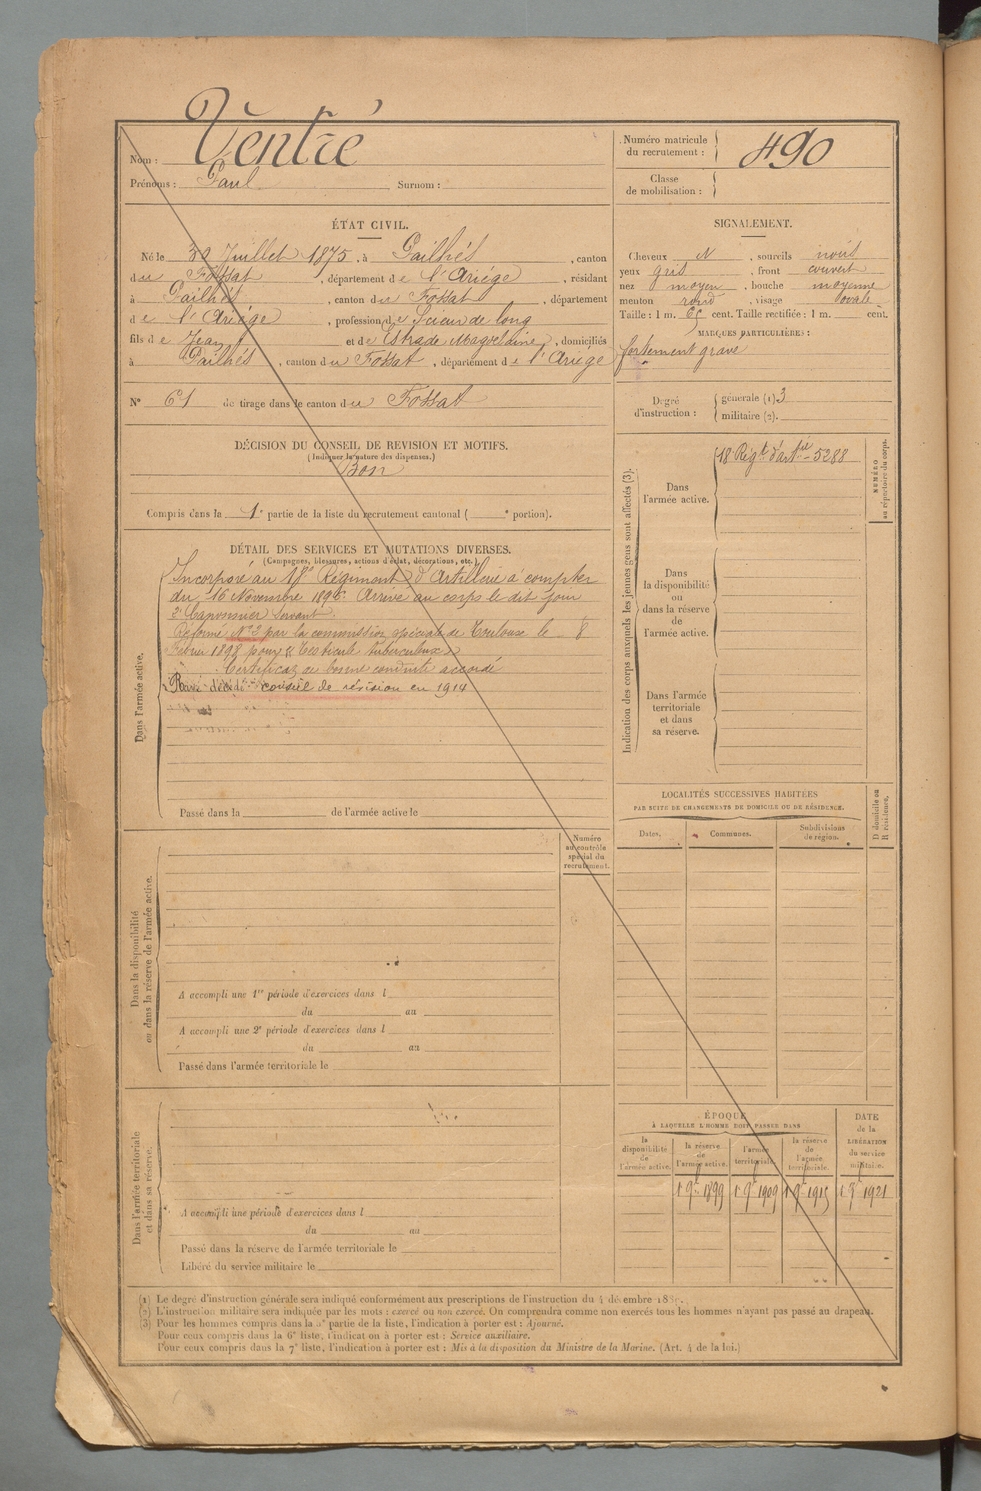 Nom : Ventré
Prénoms : Paul Surnom :
Numéro matricule du recrutement : 490
Classe de mobilisation :
ÉTAT CIVIL.
Né le 30 Juillet 1875, à Pailhés, canton
du Fossat, département de l'Ariège, résidant
à Pailhés, canton du Fossat, département
de l'Ariège, profession de Scieur de long
fils de Jean et de Estrade Magdelaine, domiciliés
à Pailhés, canton du Fossat, département de l'Ariège
N° 61 de tirage dans le canton du Fossat
SIGNALEMENT.
Cheveux N, sourcils noirs
yeux gris, front couvert
nez moyen, bouche moyenne
menton rond, visage ovale
Taille : 1 m. 65 cent. Taille rectifiée : 1 m. cent.
MARQUES PARTICULIÈRES :
fortement gravé
Degré d'instruction : générale (1). 3
militaire (2).
DÉCISION DU CONSEIL DE REVISION ET MOTIFS.
(Indiquer la nature des dispenses.)
Bon
Compris dans la 1e partie de la liste du recrutement cantonal ( e portion).
DÉTAIL DES SERVICES ET MUTATIONS DIVERSES.
(Campagnes, blessures, actions d'éclat, décorations, etc.)
Dans l'armée active.
Incorporé au 18e Régiment d'Artillerie à compter
du 16 Novembre 1896. Arrivé au corps le dit jour
2e Canonnier Servant.
Réformé N° 2 par la commission spéciale de Toulouse le 8
Février 1898 pour "Testicule tuberculeux"
Certificat de bonne conduite accordé
Rayé décédé conseil de révision en 1914
Passé dans la de l'armée active le
Indication des corps auxquels les jeunes gens sont affectés (3).
Dans l'armée active.
18 Régt d'artie - 5288
NUMÉRO au répertoire du corps.
Dans la disponibilité ou dans la réserve de l'armée active.
Dans l'armée territoriale et dans sa réserve.
LOCALITÉS SUCCESSIVES HABITÉES
PAR SUITE DE CHANGEMENTS DE DOMICILE OU DE RÉSIDENCE.
Dates.
Communes.
Subdivisions de région.
D domicile ou R résidence.
Numéro au contrôle spécial du recrutement.
Dans la disponibilité ou dans la réserve de l'armée active.
A accompli une 1re période d'exercices dans l
du au
A accompli une 2e période d'exercices dans l
du au
Passé dans l'armée territoriale le
Dans l'armée territoriale et dans sa réserve.
A accompli une période d'exercices dans l
du au
Passé dans la réserve de l'armée territoriale le
Libéré du service militaire le
ÉPOQUE
À LAQUELLE L'HOMME DOIT PASSER DANS
la disponibilité de l'armée active.
la réserve de l'armée active.
l'armée territoriale.
la réserve de l'armée territoriale.
DATE de la LIBÉRATION du service militaire.
1 9bre 1899
1 9bre 1909
1 9bre 1915
1 9bre 1921
(1) Le degré d'instruction générale sera indiqué conformément aux prescriptions de l'instruction du 4 décembre
(2) L'instruction militaire sera indiquée par les mots : exercé ou non exercé. On comprendra comme non exercés tous les hommes n'ayant pas passé au drapeau.
(3) Pour les hommes compris dans la 2e partie de la liste, l'indication à porter est : Ajourné.
Pour ceux compris dans la 6e liste, l'indication à porter est : Service auxiliaire.
Pour ceux compris dans la 7e liste, l'indication à porter est : Mis à la disposition du Ministre de la Marine. (Art. 4 de la loi.)